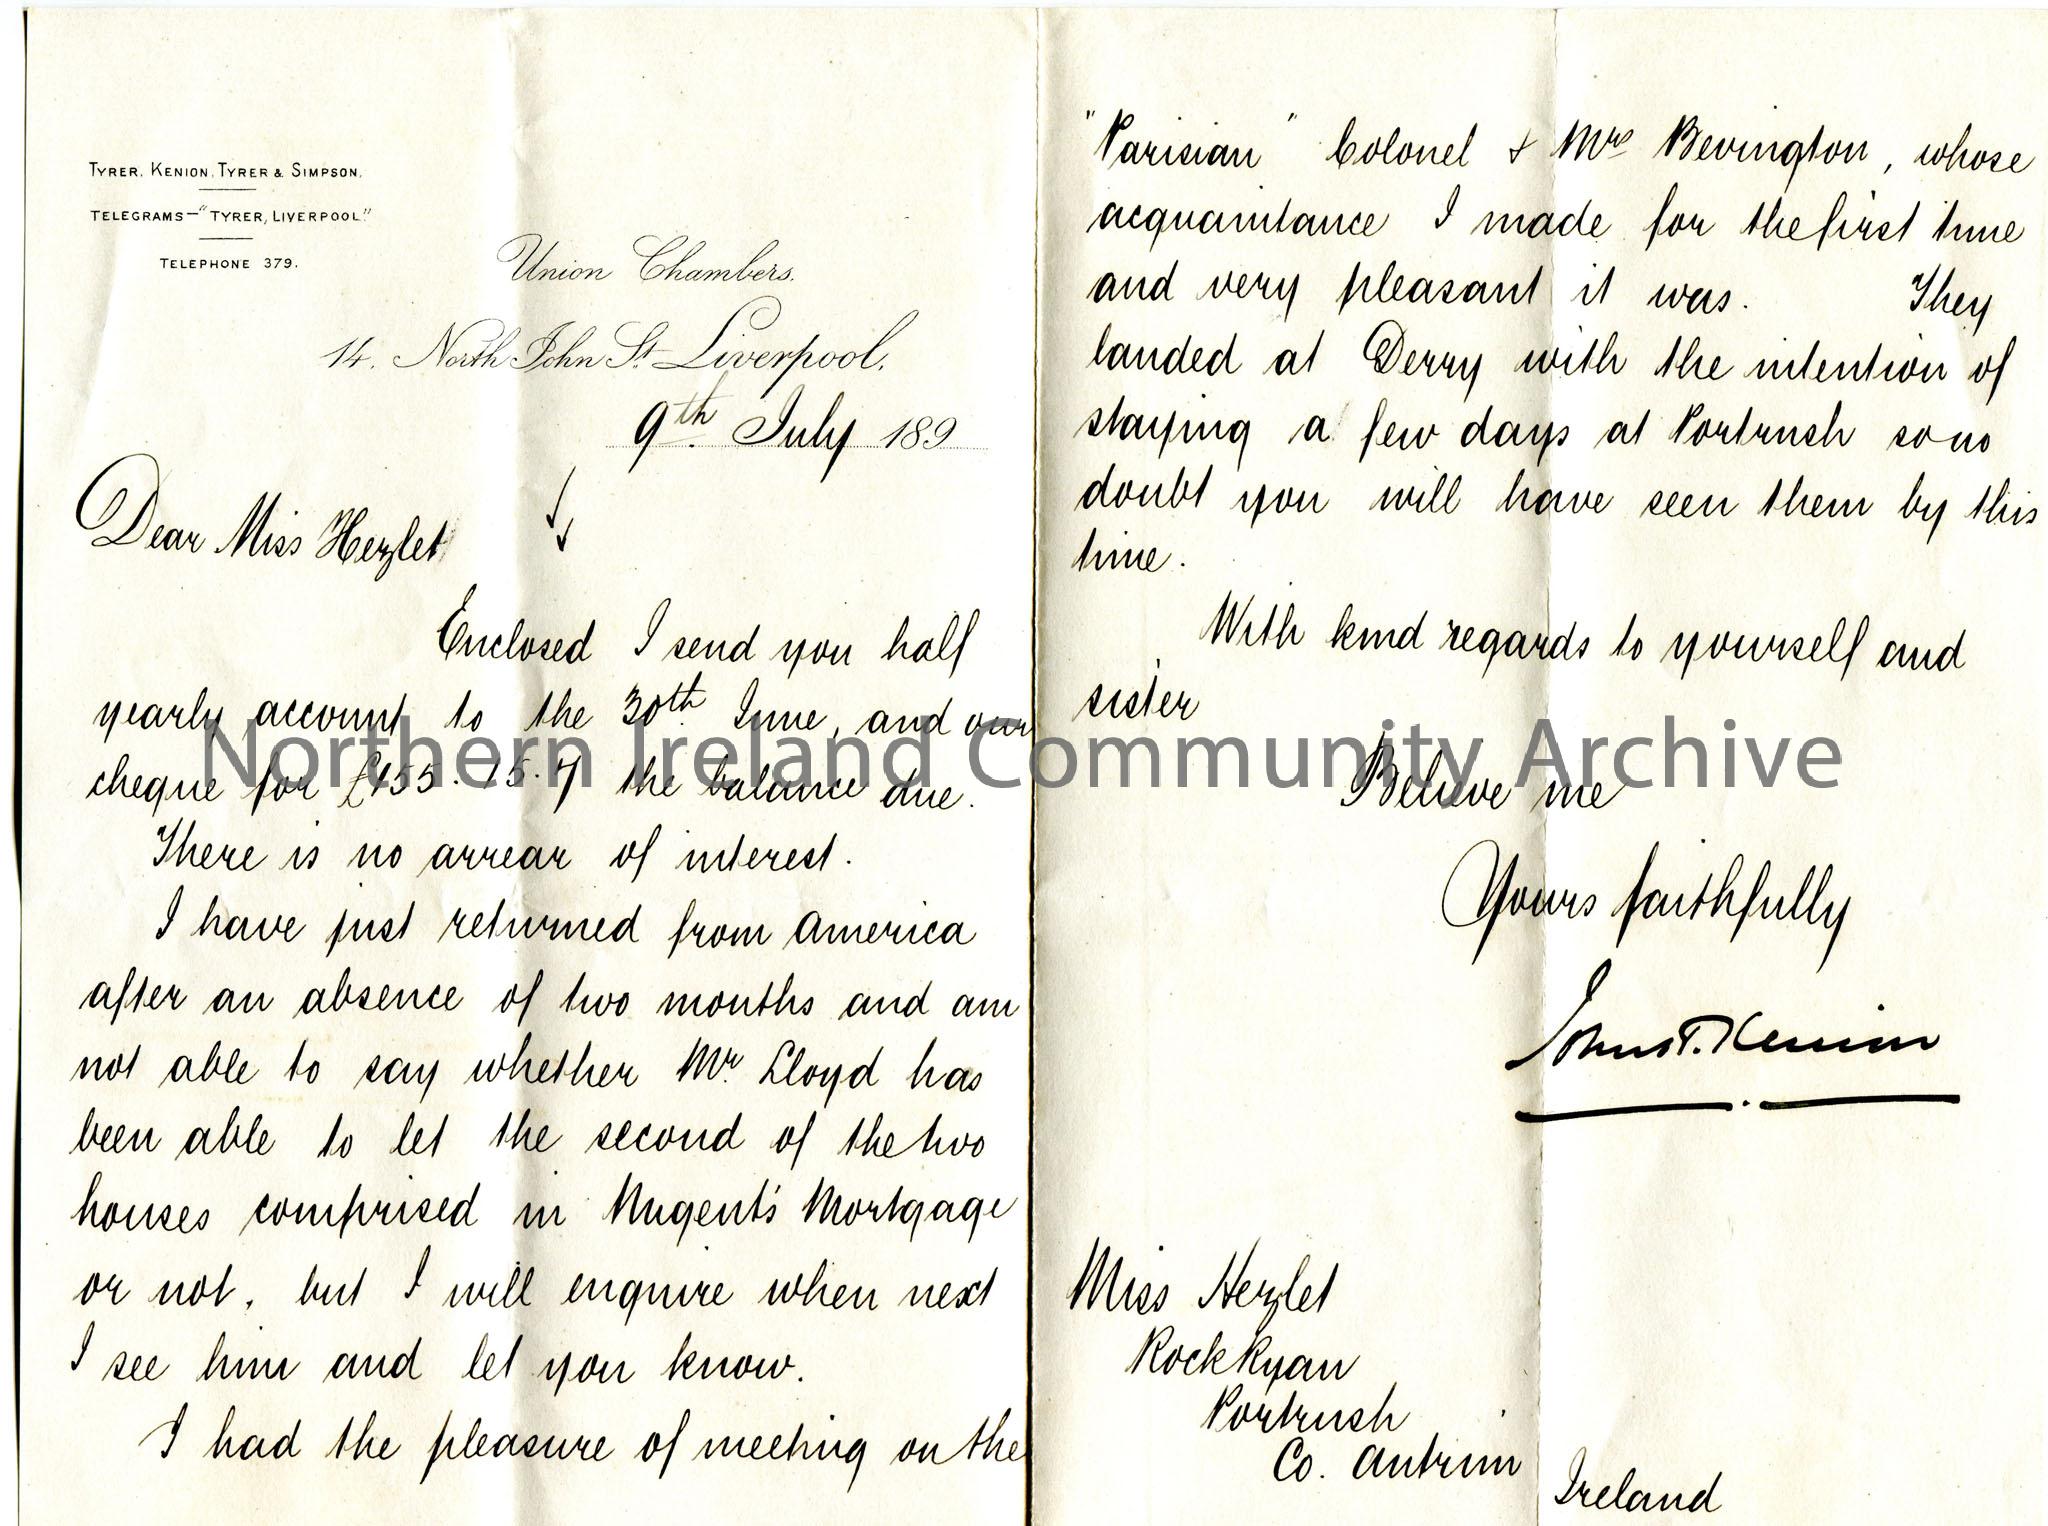 TYRER, KENION, TYRER & SIMPSON.
TELEGRAMS—"TYRER, LIVERPOOL."
TELEPHONE 379.
Union Chambers.
14. North John St. Liverpool.
9th July 189
Dear Miss Hezlet
Enclosed I send you half
yearly account to the 30th June, and our
cheque for £155.15.7 the balance due.
There is no arrear of interest.
I have just returned from America
after an absence of two months and am
not able to say whether Mr. Lloyd has
been able to let the second of the two
houses comprised in Nugent's Mortgage
or not, but I will enquire when next
I see him and let you know.
I had the pleasure of meeting on the
"Parisian" Colonel & Mrs Bevington, whose
acquaintance I made for the first time
and very pleasant it was. They
landed at Derry with the intention of
staying a few days at Portrush so no
doubt you will have seen them by this
time.
With kind regards to yourself and
sister
Believe me
Yours faithfully
Kenion
Miss Hezlet
Rock Ryan
Portrush
Co. Antrim
Ireland
Northern Ireland Community Archive